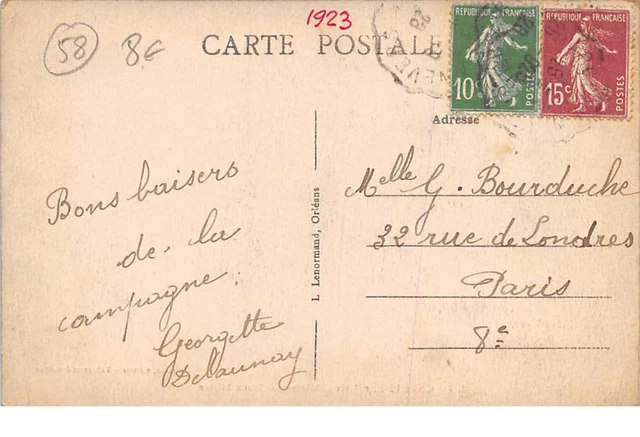 58
8€
1923
CARTE POSTALE
REPUBLIQUE FRANÇAISE
10c
POSTES
REPUBLIQUE FRANÇAISE
15c
POSTES
Adresse
Bons baisers
de la
campagne.
Georgette
Delaunay
L. Lenormand, Orléans
Melle G. Bourduche
32 rue de Londres
Paris
8e